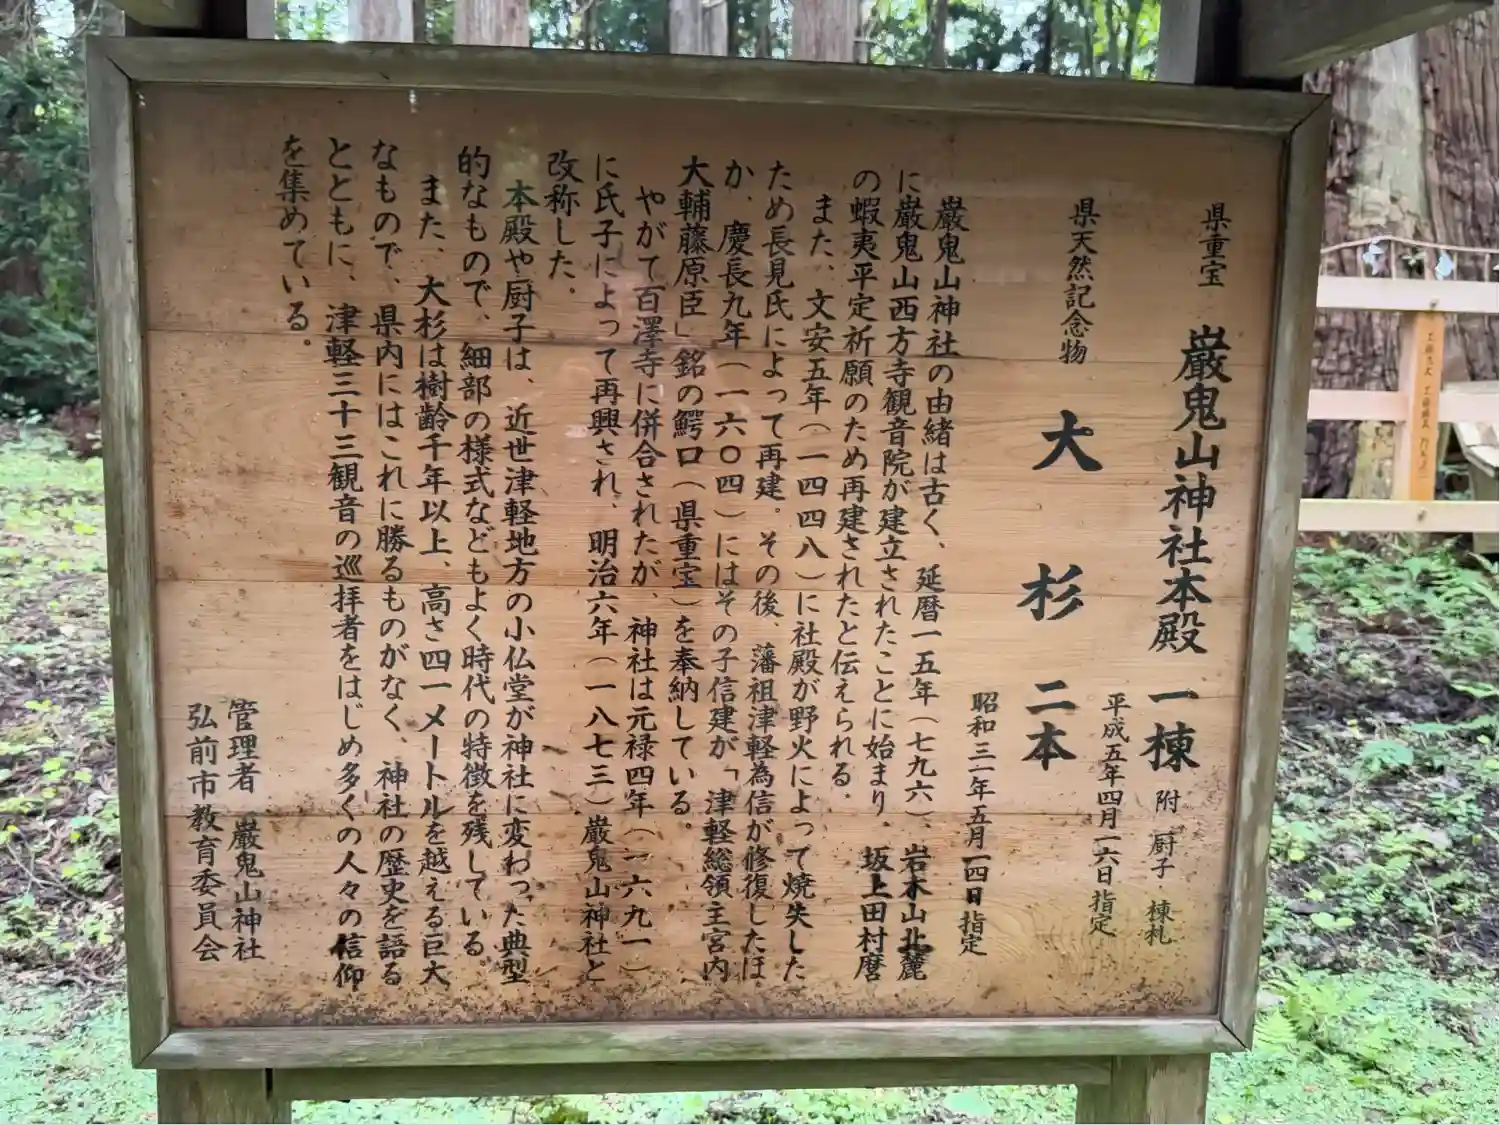 県重宝 巌鬼山神社本殿 一棟 附 厨子・棟札
平成五年四月一六日指定
県天然記念物 大杉 二本
昭和三一年五月一四日指定
巌鬼山神社の由緒は古く、延暦一五年(七九六)、岩木山北麓
に巌鬼山西方寺観音院が建立されたことに始まり、坂上田村麿
の蝦夷平定祈願のため再建されたと伝えられる。
また、文安五年(一四四八)に社殿が野火によって焼失した
ため長見氏によって再建。その後、藩祖津軽為信が修復したほ
か、慶長九年(一六〇四)にはその子信建が「津軽総領主宮内
大輔藤原臣」銘の鰐口(県重宝)を奉納している。
やがて百澤寺に併合されたが、神社は元禄四年(一六九一)
に氏子によって再興され、明治六年(一八七三)巌鬼山神社と
改称した。
本殿や厨子は、近世津軽地方の小仏堂が神社に変わった典型
的なもので、細部の様式などもよく時代の特徴を残している。
また、大杉は樹齢千年以上、高さ四一メートルを越える巨大
なもので、県内にはこれに勝るものがなく、神社の歴史を語る
とともに、津軽三十三観音の巡拝者をはじめ多くの人々の信仰
を集めている。
管理者 巌鬼山神社
弘前市教育委員会